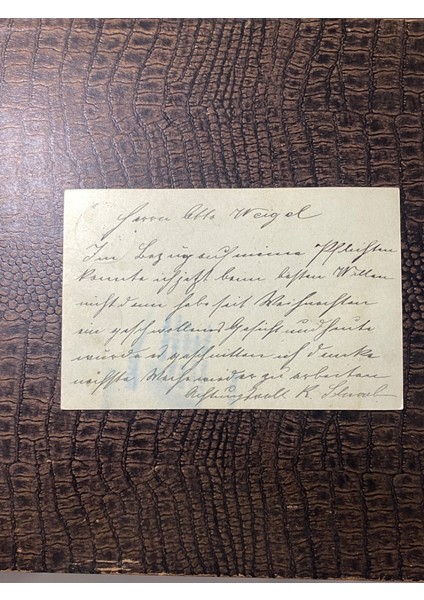 Herrn Otto Weigel
Im Bezug auf meine Pflichten
konnte ich jetzt beim besten Willen
nicht denn habe seit Weihnachten
ein geschwollenes Gesicht und heute
wurde es geschnitten ich denke
nächste Woche wieder zu arbeiten
Achtungsvoll K.